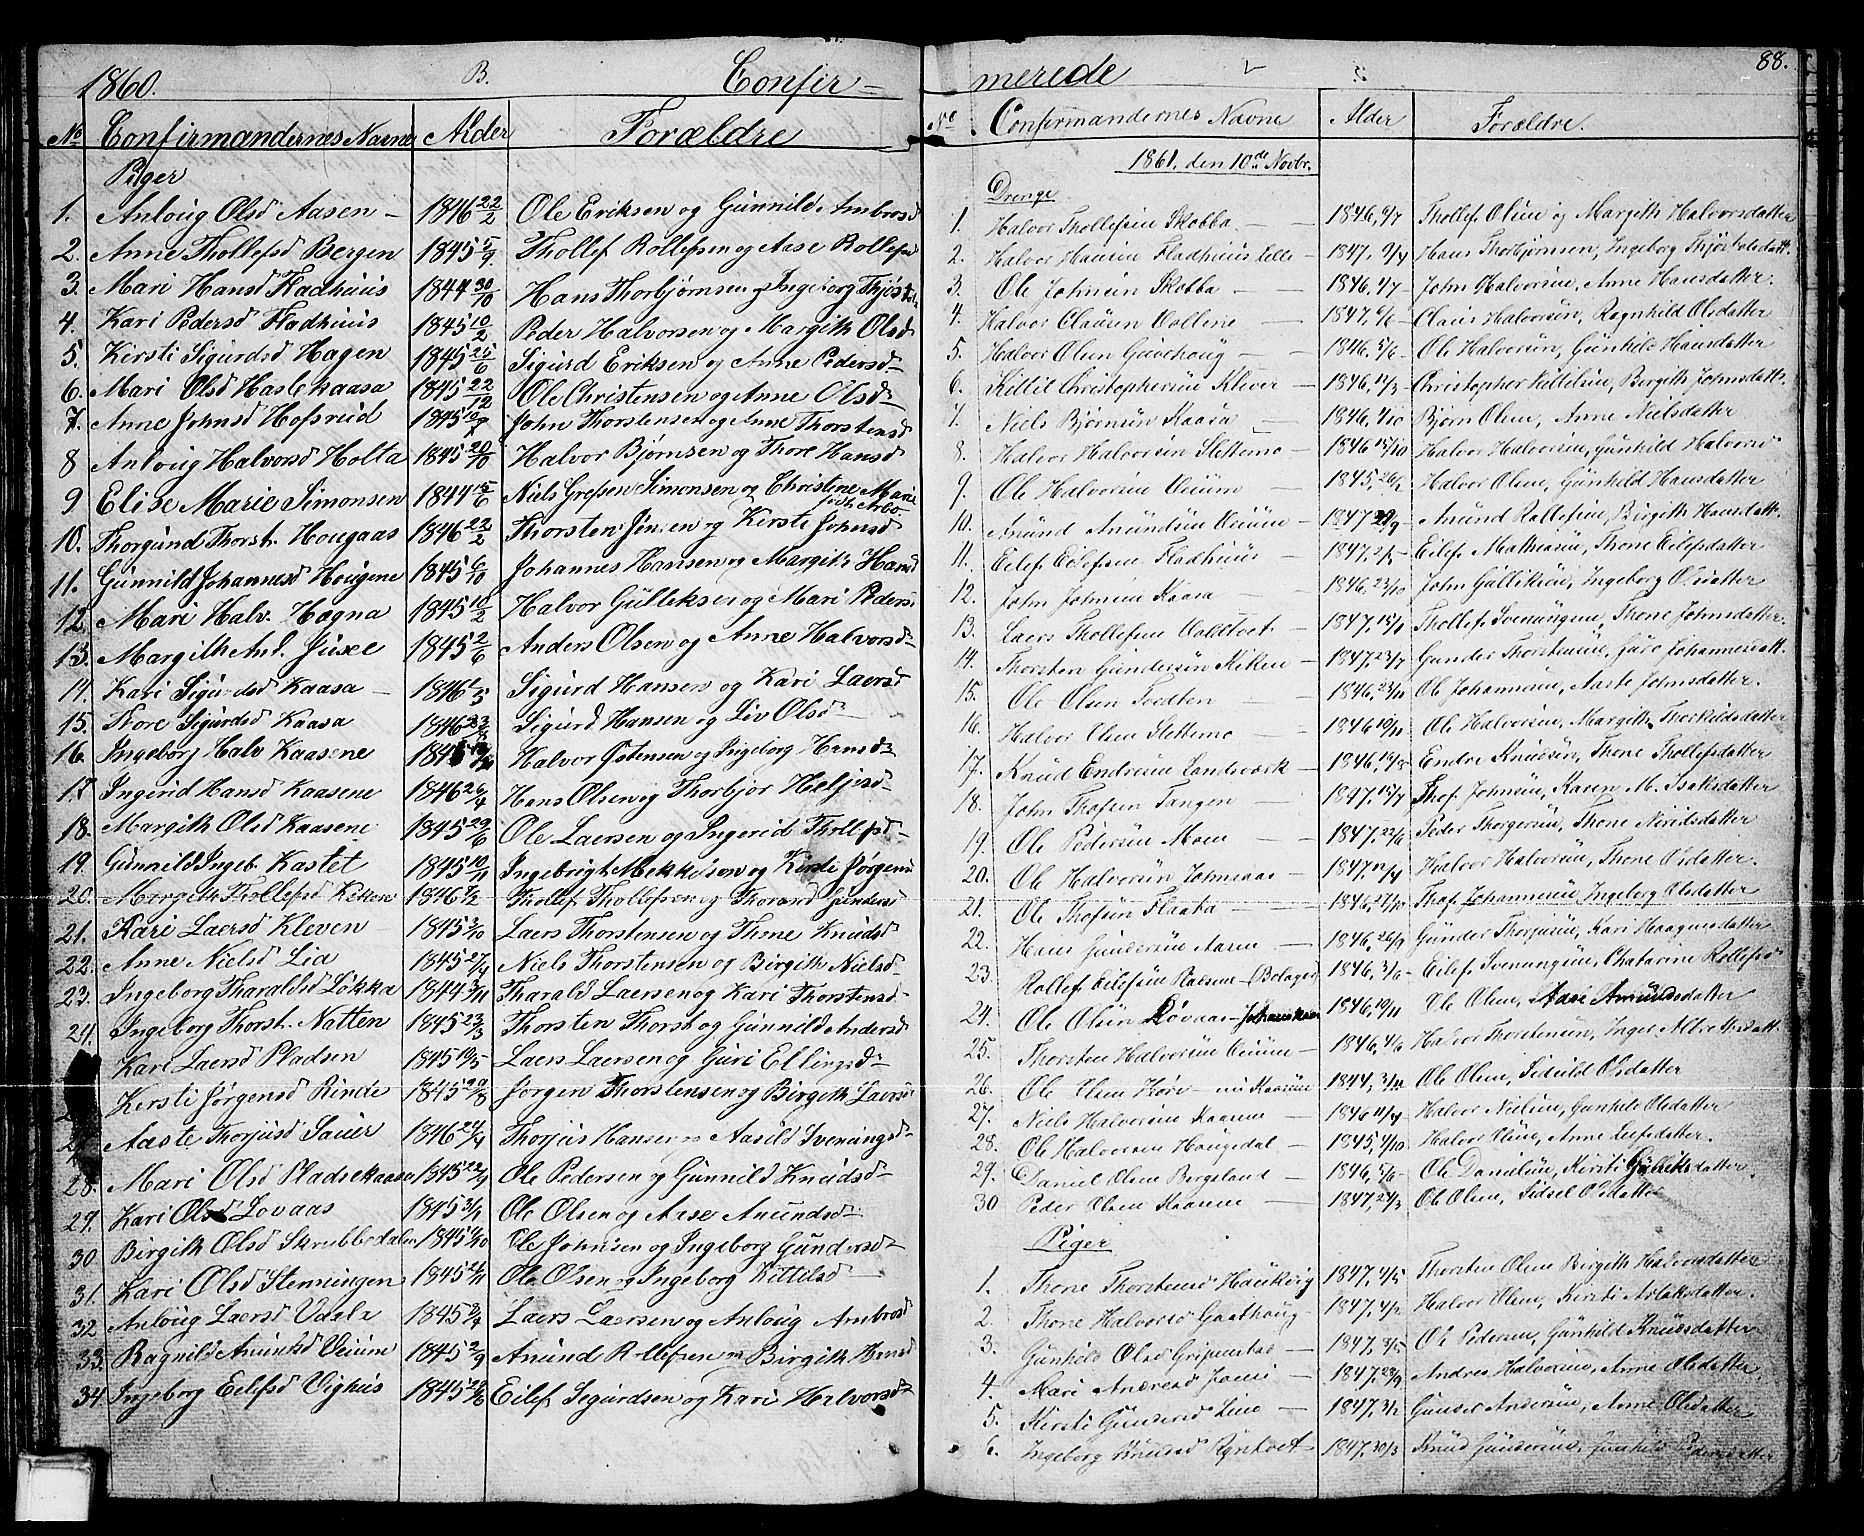 1860. B. Confir-
No Confirmandernes Navne Alder Forældre
Piger
1. Anloug Olsd Aasen - 1846 22/2 Ole Eriksen og Gunnild Ambrosd
2. Anne Thollefsd Bergen 1845 5/9 Thollef Rollefsen og Aase Rollefsd
3. Mari Hansd Fladhuus 1844 30/10 Hans Thorbjørnsen og Ingeborg
4. Kari Pedersd Fladhuus 1845 10/2 Peder Halvorsen og Margith Olsd
5. Kersti Sigurdsd Hagen 1845 25/6 Sigurd Eriksen og Anne Pedersd-
6. Mari Olsd Haslekaasa 1845 22/12 Ole Christensen og Anne Olsd-
7. Anne Johnsd Hofsrud 1845 John Thorstensen og Anne Thorstensd
8 Anloug Halvorsd Holta 1845 20/10 Halvor Bjørnsen og Thore Hansd
9 Elise Marie Simonsen 1844 15/6 Niels Gresen Simonsen og Christene Marie født Arbo
10. Thorgund Thorst. Hougaas 1846 22/2 Thorsten Jensen og Kerste Johnsd
11. Gunnild Johannesd Hougene 1845 6/10 Johannes Hansen og Margith Hansd
12. Mari Halv. Hogna 1845 10/2 Halvor Gulleksen og Mari Pedersd
13. Margith And. Juxe 1845 2/6 Anders Olsen og Anne Halvorsd-
14. Kari Sigurdsd Kaasa - 1846 1/5 Sigurd Hansen og Kari Laersd
15. Tore Sigurdsd Kaasa 1846 Sigurd Hansen og Liv Olsd-
16. Ingeborg Halv Kaasene 1845 Halvor Østensen og Ingeborg Hansd-
17 Ingerid Hansd Kaasene 1846 26/4 Hans Olsen og Thorbjør Heljesd-
18. Margith Olsd Kaasene 1845 29/6 Ole Laersen og Ingerid Thollefsd-
19. Gunnild Ingeb. Kastet 1845 10/11 Ingebrigt Mekkelsen og Kirsti Jørgensd
20. Margith Thollefsd Kikken 1846 1/2 Thollef Thollefsen og Thorand Gundersd
21. Kari Laersd Kleven - 1845 3/10 Laers Thorstensen og Thone Knudsd
22. Anne Nielsd Lia 1845 27/4 Niels Thorstensen og Birgith Nielsd-
23. Ingeborg Tharaldsd Løkka 1844 3/11 Tharald Laersen og Kari Thorstensd-
24. Ingeborg Thorst. Natten 1845 23/3 Thorsten Thorst og Gunnild Andersd
Kari Laersd Pladsen 1845 19/5 Laers Laersen og Guri Ellingsd-
Kersti Jørgensd Rinde 1845 29/8 Jørgen Thorstensen og Birgith Laersd
27. Aaste Thorjusd Sauer 1846 24/4 Thorjus Hansen og Aasild Svenungsd-
28. Mari Olsd Pladsekaasa 1845 22/9 Ole Pedersen og Gunnild Knudsd-
29. Kari Olsd Lovaas 1845 3/1 Ole Olsen og Aase Anundsd-
30 Birgith Olsd Skrubbedalen 1845 Ole Johnsen og Ingeborg Gundersd-
31. Kari Olsd Stenningen 1845 Ole Olsen og Ingeborg Kittilsd-
32 Anloug Laersd Vaala 1845 Laers Laersen og Anloug Ambrosd
33. Ragnild Anundsd Veium 1845 2/9 Anund Rollefsen og Birgith Hansd
34. Ingeborg Eilefsd Vighus 1845 Eilef Sigurdsen og Kari Halvorsd-
merede 88.
No Confirmandernes Navne Alder Forældre.
1861. den 10de Novbr.
Drenge
1. Halvor Thollefsen Skobba - 1846, 6/7 Thollef Olsen og Margith Halvorsdatter
2. Halvor Hansen Fladhuus Lille - 1847, 9/4 Hans Thorbjørnsen, Ingeborg
3. Ole Johnsen Skobba - 1846, 4/7 John Halvorsen, Anne Hansdatter.
4. Halvor Clausen Vollene - 1847, 6/6 Claus Halvorsen, Ragnhild Olsdatter
5. Halvor Olsen Gaashoug - 1846, 5/6 - Ole Halvorsen, Gunhild Hansdatter
6. Kittil Christophersen Klever - 1846, 14/3 Christopher Kittilsen, Bergith Johnsdatt.
7. Niels Bjørnsen Kaasa - 1846, 4/10 Bjørn Olsen, Anne Nielsdatter
8. Halvor Halvorsen Slettemo - 1846 15/10 Halvor Halvorsen, Gunhild Halvorsd
9. Ole Halvorsen Veium 1845, 26/2 Halvor Olsen, Gunhild Hansdatter
10. Anund Anundsen Veium - 1847 29/9 - Anund Rollefsen, Birgith Hansdatt.
11. Eilef Eilefsen Fladhuus - 1847, 2/5 - Eilef Mathisen, Thone Eilefsdatter
12. John Johnsen Kaasa - 1846, 23/10 John Gulliksen, Ingeborg Olsdatter
13. Laers Thollefsen Valdtvet - 1847, 15/1 Thollef Svenungsen, Thone Johnsdatter.
14. Thorsten Gundersen Kiken - 1847, 23/7 Gunder Thorstensen, Guro Johannesdatt.
15. Ole Olsen Tvedten - 1846, 23/11 Ole Johannesen, Aaste Johnsdatter.
16. Halvor Olsen Slettemo - 1846 19/11 Ole Halvorsen, Margith Thorkildsdatter
17. Knud Endresen Landsvark 1846, 19/8 Endre Knudsen, Thone Thollefsdatter
18. John Thofsen Tangen - 1847. 15/7 Thof Johnsen, Karen M. Isaksdatter
19. Ole Pedersen Moen - 1847. 22/6 Peder Thorgersen, Thone Nirisdatter
20. Ole Halvorsen Johnsaas - 1847. 11/4 Halvor Halvorsen, Thone Olsdatter.
21. Ole Thofsen Flaata - 1846, 27/10 Thof Johannesen, Ingeborg Olsdatter
22. Hans Gundersen Aasen - 1846, 26/9 Gunder Thorjusen, Kari Haagensdatter
23 Rollef Eilefsen Roesene - Bolager 1846, 3/6 - Eilef Svenungsen, Chatarine Rollefsd
24. Ole Olsen Løvaas - 1846, 19/11 Ole Olsen, Aase Amundsdatter
25. Thorsten Halvorsen Veium - 1846, 4/6 Halvor Thorstensen, Inger
26. Ole Olsen Høie - nu Kaasene 1844, 3/11 Ole Olsen, Sidsild Olsdatter
27. Niels Halvorsen Kaasene - 1846 11/4 Halvor Nielsen, Gunhild Olsdatter
28. Ole Halvorsen Hougedal - 1845, 4/10 Halvor Olsen, Anne Leifsdatter.
29. Daniel Olsen Bergeland - 1846, 5/6 - Ole Danielsen, Kirsti Gulliksdatter.
30 Peder Olsen Kaasene - 1847, 24/3 Ole Olsen, Sidsel Olsdatter
Piger
1. Thone Thorstensd Haukvig 1847, 4/5 Thorsten Olsen Birgith Halvorsdatter
2. Thone Halvorsd Gaashoug 1847, 4/2 Halvor Olsen, Kirsti Aslaksdatter.
3. Gunhild Olsd Gripenstad - 1847. 3/5 Ole Pedersen, Gunhild Knudsdatter
4. Mari Andresd 1847. 29/9 Andres Halvorsen, Anne Olsdatter.
5. Kirsti Gundersd Line - 1847, 3/2 Gunder Andersen, Anne Olsdatter
6. Ingeborg Knudsd 1847, 30/3 Knud Gundersen, Gunhild Pedersdatter